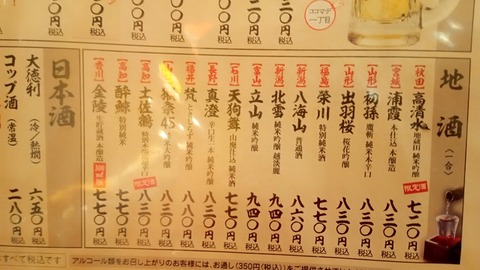 ココマデ
一丁目
地酒（一合）
【秋田】高清水 地蔵田 純米吟醸 限定酒 七二〇円税込
【宮城】浦霞 本仕込 本醸造 八三〇円税込
【山形】初孫 魔斬 純米本辛口 八三〇円税込
【山形】出羽桜 桜花吟醸 八三〇円税込
【福島】栄川 特別純米酒 七七〇円税込
【新潟】八海山 普通酒 八八〇円税込
【新潟】北雪 純米吟醸 越淡麗 九四〇円税込
【富山】立山 純米吟醸 九四〇円税込
【石川】天狗舞 山廃仕込 純米酒 七七〇円税込
【長野】真澄 純米吟醸 八三〇円税込
【福井】梵 ときしらず 純米吟醸 八三〇円税込
獺祭45 純米大吟醸 円税込
【高知】土佐鶴 限定酒 八三〇円税込
【高知】酔鯨 特別純米 七七〇円税込
【香川】金陵 生貯蔵酒 本醸造 300ml瓶 七七〇円税込
日本酒
大徳利（冷／熱燗） 六五〇円税込
コップ酒（常温） 二八〇円税込
すべて税込です
アルコール類をお召し上がりのお客様には、お通し(350円(税込))をご提供させ